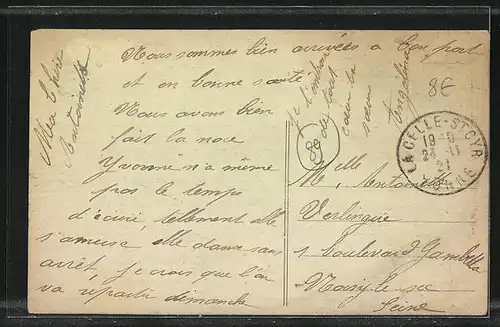 Ma chère
Antoinette
Nous sommes bien arrivées a bon port
et en bonne santé
Nous avons bien
fait la noce
Yvonne n'a même
pas le temps
d'écrire, tellement elle
s'amuse elle danse sans
arrêt, je crois que l'on
va repartir dimanche
Je t'embrasse
de tout
cœur ta
sœur
Angelina
8€
80
LA CELLE-ST-CYR
19
24 - 11
21
YONNE
Melle Antoinette
Verlingue
1 boulevard Gambetta
Noisy le sec
Seine